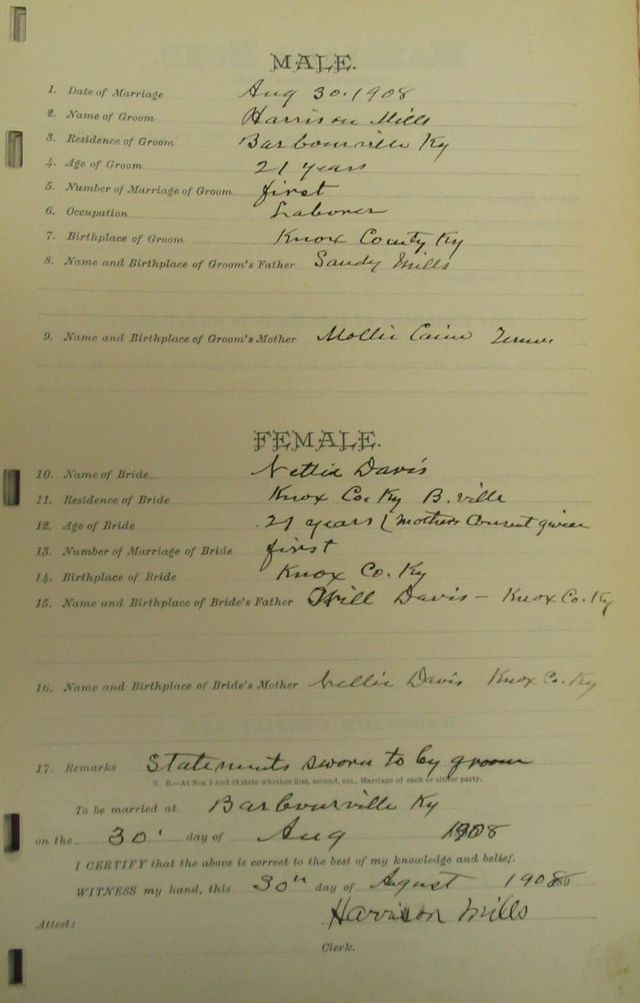 MALE.
1. Date of Marriage Aug 30, 1908
2. Name of Groom Harrison Mills
3. Residence of Groom Barbourville Ky
4. Age of Groom 21 years
5. Number of Marriage of Groom first
6. Occupation Laborer
7. Birthplace of Groom Knox County Ky
8. Name and Birthplace of Groom's Father Sandy Mills
9. Name and Birthplace of Groom's Mother Mollie Cain Tenn.
FEMALE.
10. Name of Bride Nettie Davis
11. Residence of Bride Knox Co. Ky B.ville
12. Age of Bride 21 years (mothers Consent given
13. Number of Marriage of Bride first
14. Birthplace of Bride Knox Co. Ky
15. Name and Birthplace of Bride's Father Will Davis - Knox Co. Ky
16. Name and Birthplace of Bride's Mother Davis Knox Co. Ky
17. Remarks Statements sworn to by groom
N. B.—At Nos 5 and 13 state whether first, second, etc., Marriage of each or either party.
To be married at Barbourville Ky
on the 30' day of Aug 1908
I CERTIFY that the above is correct to the best of my knowledge and belief.
WITNESS my hand, this 30th day of August 1908
Harrison Mills
Attest:
Clerk.